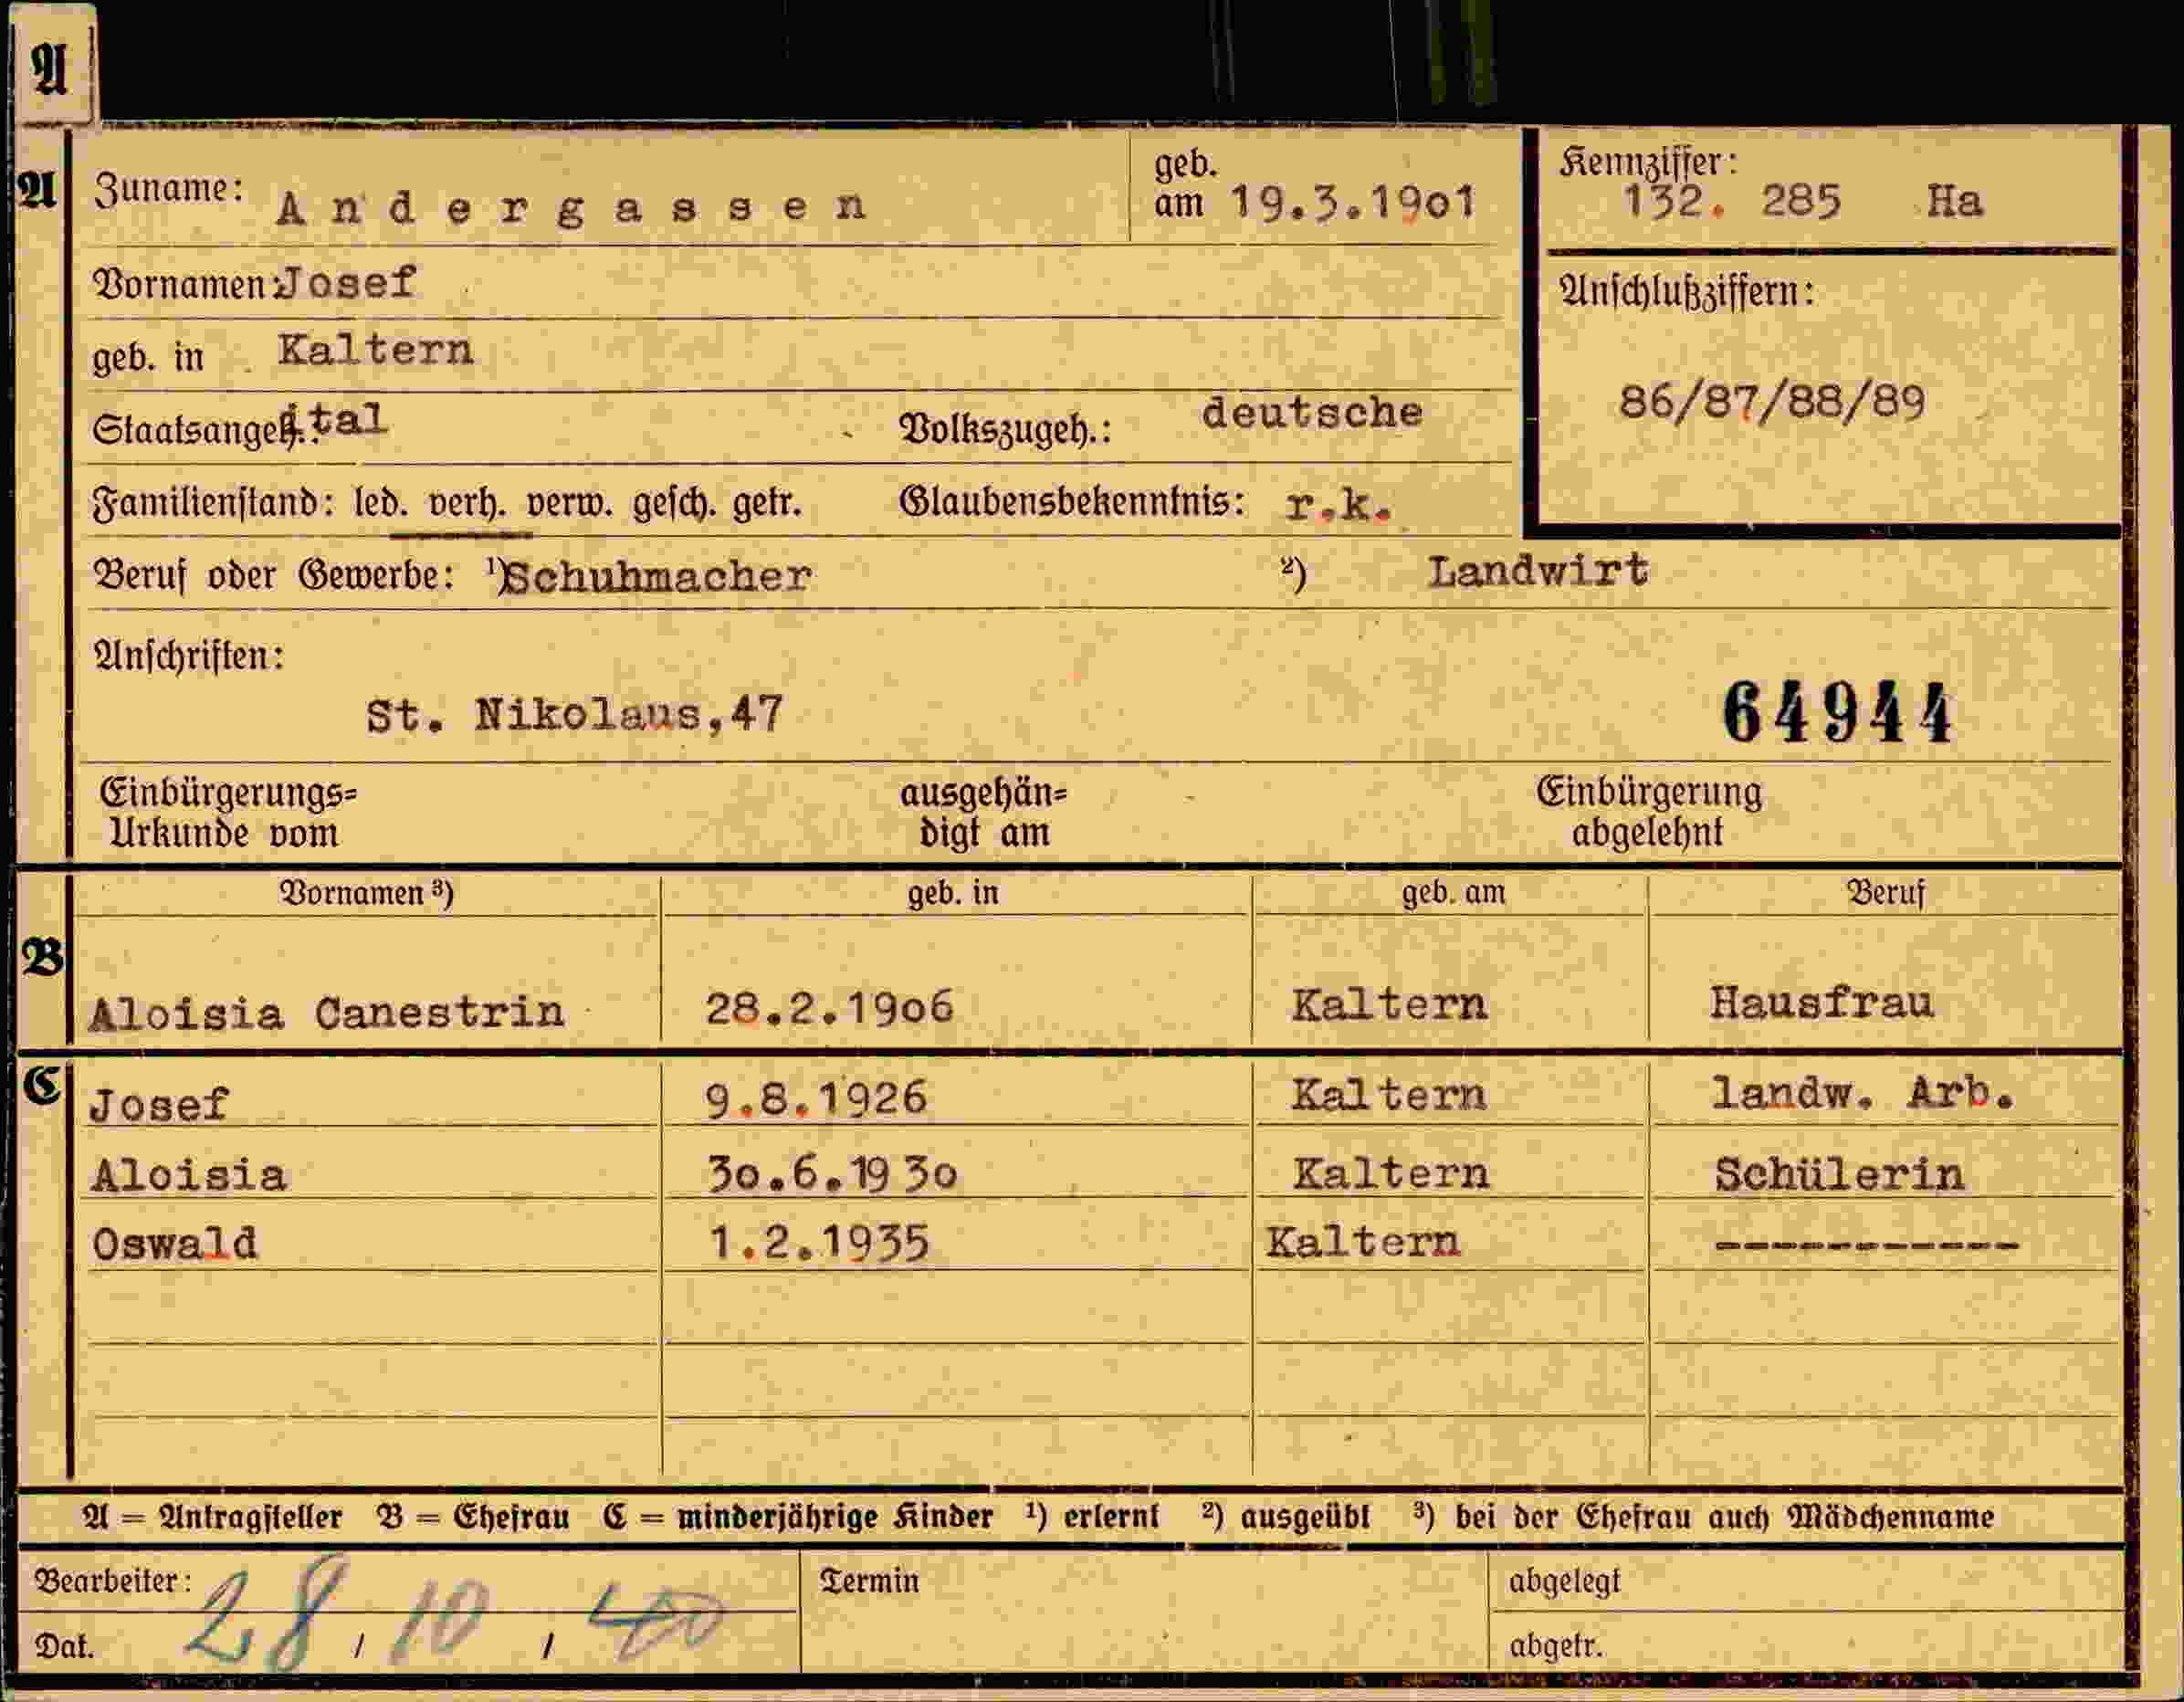 A
A Zuname: Andergassen geb. am 19.3.1901 Kennziffer: 132. 285 Ha
Vornamen: Josef Anschlußziffern:
geb. in Kaltern
86/87/88/89
Staatsangeh.: ital Volkszugeh.: deutsche
Familienstand: led. verh. verw. gesch. getr. Glaubensbekenntnis: r.k.
Beruf oder Gewerbe: ¹) Schuhmacher ²) Landwirt
Anschriften:
St. Nikolaus,47 64944
Einbürgerungs= ausgehän= Einbürgerung
Urkunde vom digt am abgelehnt
Vornamen ³) geb. in geb. am Beruf
B
Aloisia Canestrin 28.2.1906 Kaltern Hausfrau
C Josef 9.8.1926 Kaltern landw. Arb.
Aloisia 30.6.19 30 Kaltern Schülerin
Oswald 1.2.1935 Kaltern -----------
A = Antragsteller B = Ehefrau C = minderjährige Kinder ¹) erlernt ²) ausgeübt ³) bei der Ehefrau auch Mädchenname
Bearbeiter: Termin abgelegt
Dat. 28 / 10 / 40 abgetr.